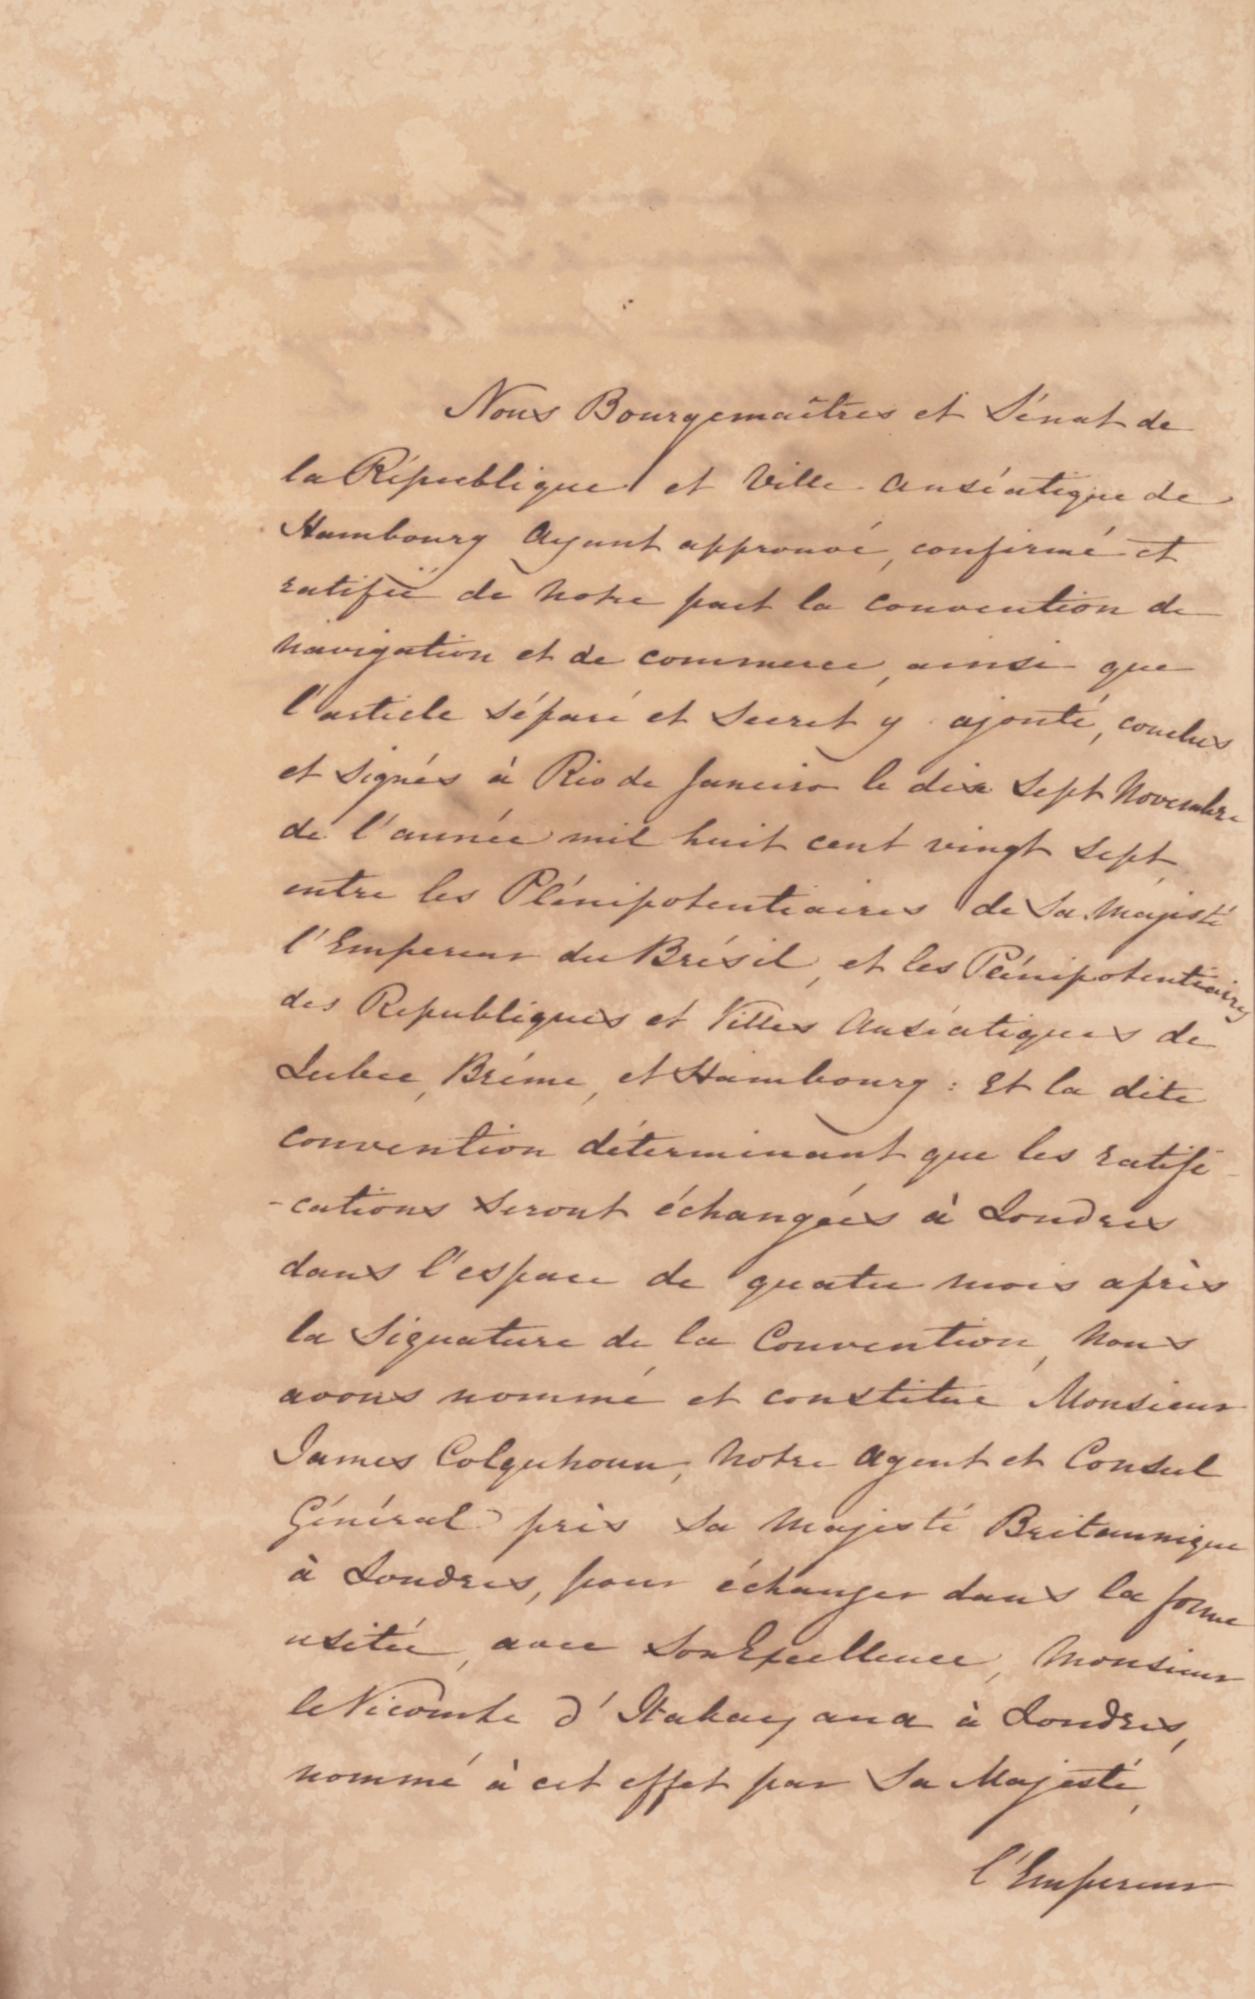 Nous Bourgemaîtres et Sénat de
la République et Ville anséatique de
Hambourg ayant approuvé, confirmé et
ratifié de notre part la convention de
navigation et de commerce, ainsi que
l'article séparé et secret y ajouté, conclus
et signés à Rio de Janeiro le dix sept Novembre
de l'année mil huit cent vingt sept
entre les Plénipotentiaires de Sa Majesté
l'Empereur du Brésil, et les Plénipotentiaires
des Republiques et Villes Anséatiques de
Lubec, Brême, et Hambourg : Et la dite
convention déterminant que les ratifi-
-cations seront échangées à Londres
dans l'espace de quatre mois après
la Signature de la Convention, Nous
avons nommé et constitué Monsieur
James Colquhoun, notre Agent et Consul
Général près Sa Majesté Britannique
à Londres, pour échanger dans la forme
usitée, avec Son Excellence, Monsieur
le Vicomte d'Itabayana à Londres,
nommé à cet effet par Sa Majesté,
l'Empereur